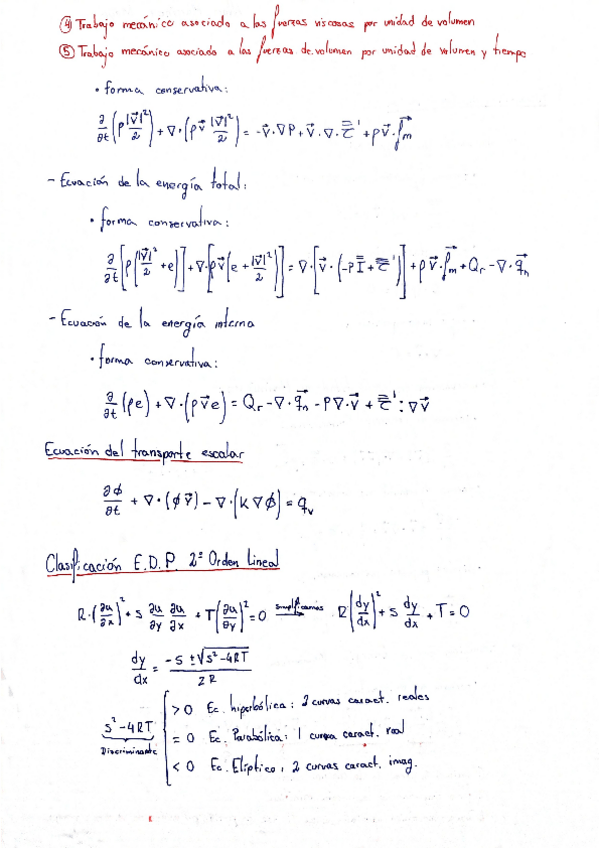 ④ Trabajo mecánico asociado a las fuerzas viscosas por unidad de volumen
⑤ Trabajo mecánico asociado a las fuerzas de volumen por unidad de volumen y tiempo
• forma conservativa:
∂/∂t (ρ |v⃗|²/2) + ∇·(ρ v⃗ |v⃗|²/2) = -v⃗·∇P + v⃗·∇·τ̿' + ρ v⃗·f⃗m
- Ecuación de la energía total:
• forma conservativa:
∂/∂t [ρ(|v⃗|²/2 + e)] + ∇·[ρ v⃗ (e + |v⃗|²/2)] = ∇·[v⃗·(-P I̿ + τ̿')] + ρ v⃗·f⃗m + Qr - ∇·q⃗n
- Ecuación de la energía interna
• forma conservativa:
∂/∂t (ρe) + ∇·(ρ v⃗ e) = Qr - ∇·q⃗n - P∇·v⃗ + τ̿' : ∇v⃗
Ecuación del transporte escalar
∂ϕ/∂t + ∇·(ϕ v⃗) - ∇·(K∇ϕ) = qv
Clasificación E.D.P. 2º Orden Lineal
R·(∂u/∂x)² + S ∂u/∂y ∂u/∂x + T(∂u/∂y)² = 0 simplificamos → R(dy/dx)² + S dy/dx + T = 0
dy/dx = (-S ± √(S² - 4RT)) / 2R
S² - 4RT
Discriminante
> 0 Ec. hiperbólica: 2 curvas caract. reales
= 0 Ec. Parabólica: 1 curva caract. real
< 0 Ec. Elíptico: 2 curvas caract. imag.